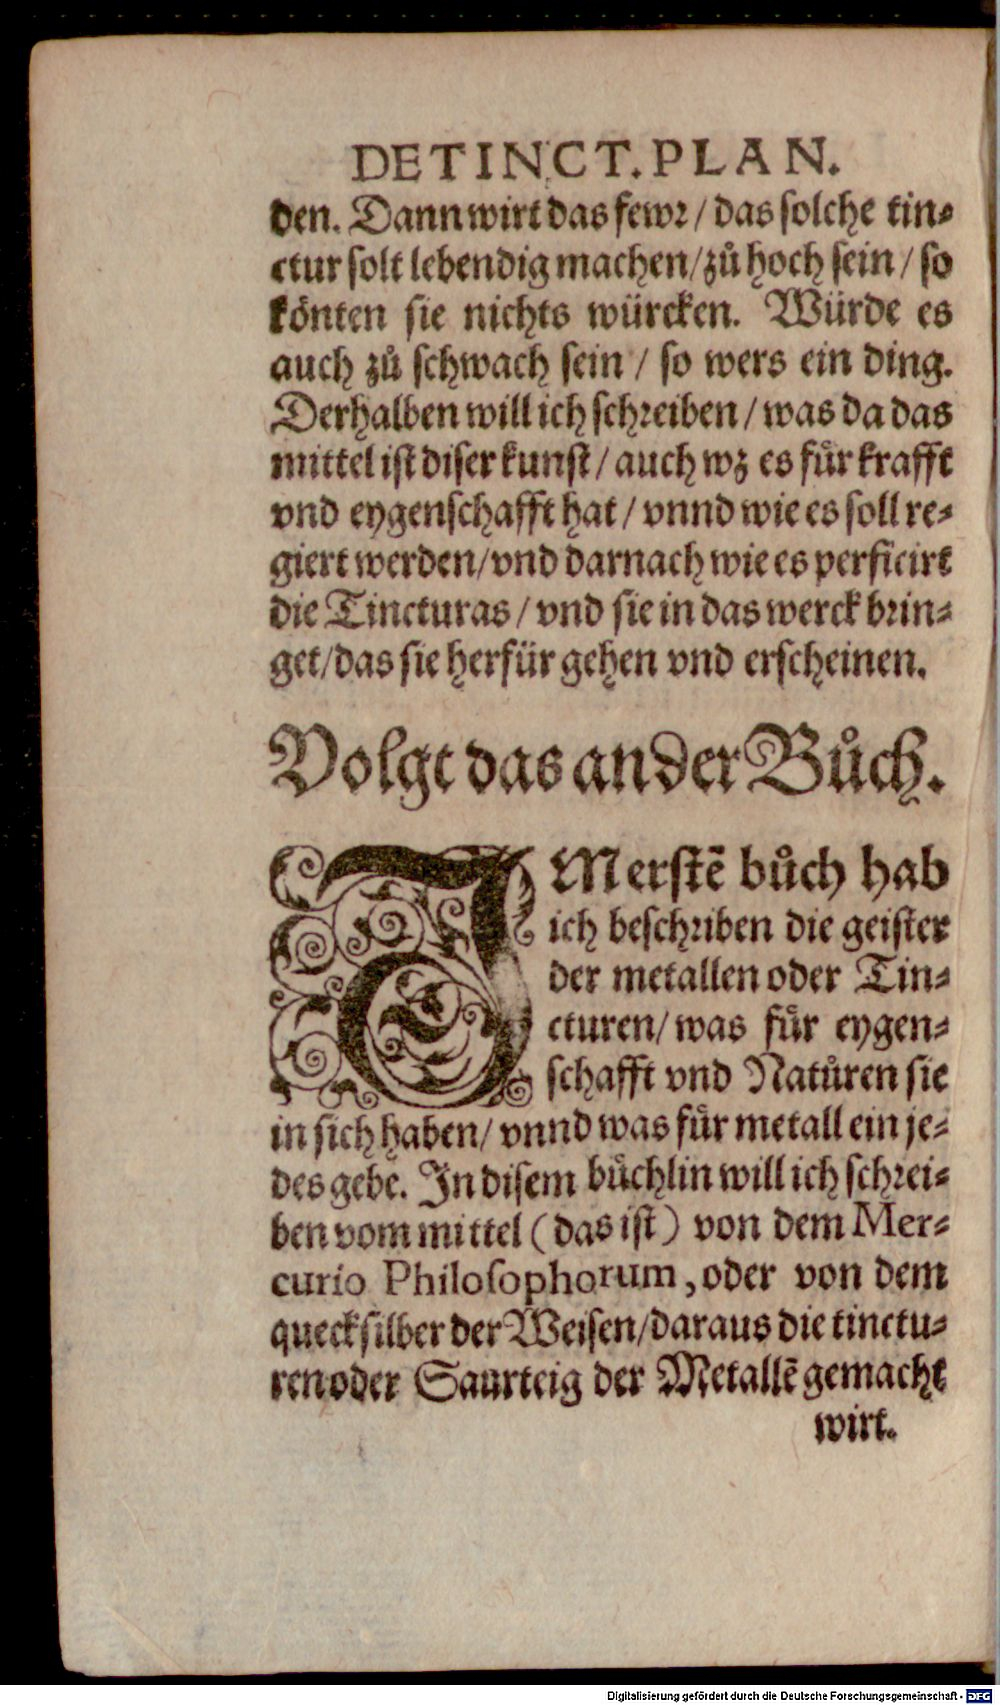 DE TINCT. PLAN.
den. Dann wirt das fewr / das solche tin⸗
ctur solt lebendig machen / zů hoch sein / so
könten sie nichts würcken. Würde es
auch zů schwach sein / so wers ein ding.
Derhalben will ich schreiben / was da das
mittel ist diser kunst / auch wz es für krafft
vnd eygenschafft hat / vnnd wie es soll re⸗
giert werden / vnd darnach wie es perficirt
die Tincturas / vnd sie in das werck brin⸗
get / das sie herfür gehen vnd erscheinen.
Volgt das ander Bůch.
IM erstē bůch hab
ich beschriben die geister
der metallen oder Tin⸗
cturen / was für eygen⸗
schafft vnd Natůren sie
in sich haben / vnnd was für metall ein je⸗
des gebe. In disem bůchlin will ich schrei⸗
ben vom mittel (das ist) von dem Mer⸗
curio Philosophorum, oder von dem
quecksilber der Weisen / daraus die tinctu⸗
ren oder Saurteig der Metallē gemacht
wirt.
Digitalisierung gefördert durch die Deutsche Forschungsgemeinschaft - DFG